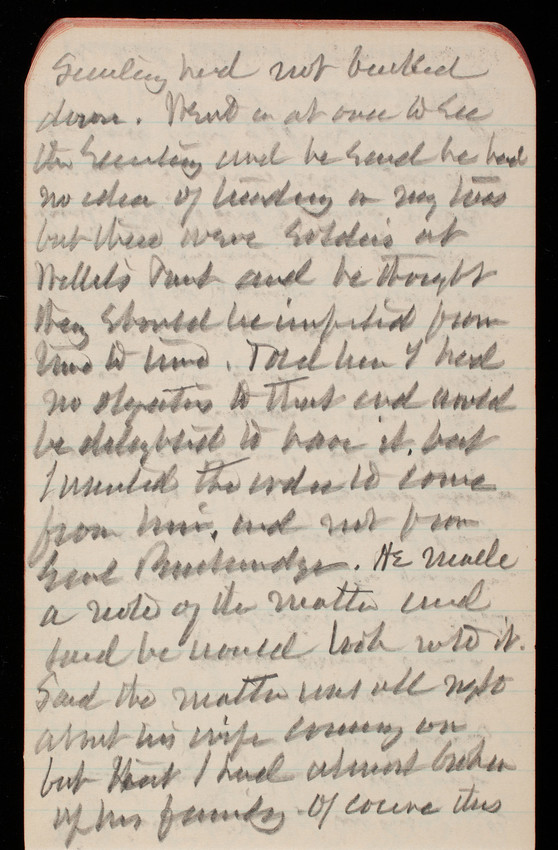 Secretary had not backed
down. Went in at once to see
the Secretary and he said he had
no idea of treading on my toes
but there were soldiers at
Willets Point and he thought
they should be inspected from
time to time. Told him I had
no objection to that and would
be delighted to have it, but
I wanted the order to come
from him, and not from
Genl Breckinridge. He made
a note of the matter and
said he would look into it.
Said the matter was all right
about his wife coming on
but that I had almost broken
up his family. Of course this